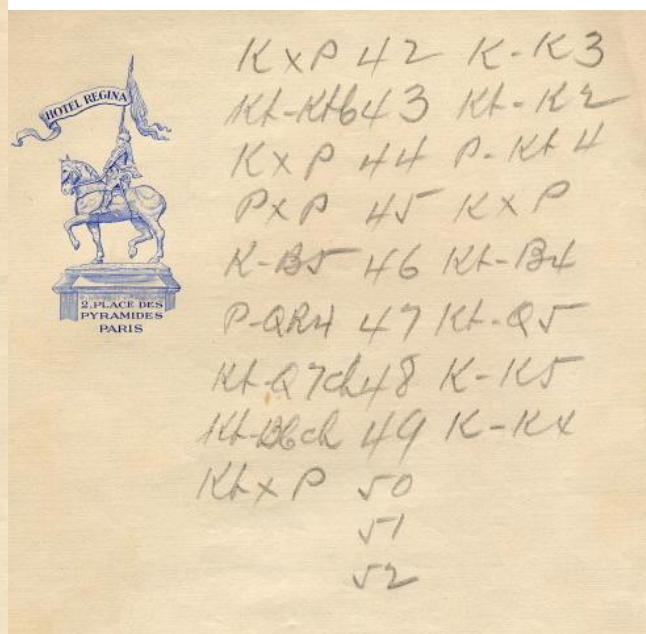 HOTEL REGINA
2, PLACE DES
PYRAMIDES
PARIS
KxP 42 K-K3
Kt-Kt6 43 Kt-K2
KxP 44 P-Kt4
PxP 45 KxP
K-B5 46 Kt-B4
P-QR4 47 Kt-Q5
Kt-Q7ch 48 K-K5
Kt-B6ch 49 K-K4
KtxP 50
51
52